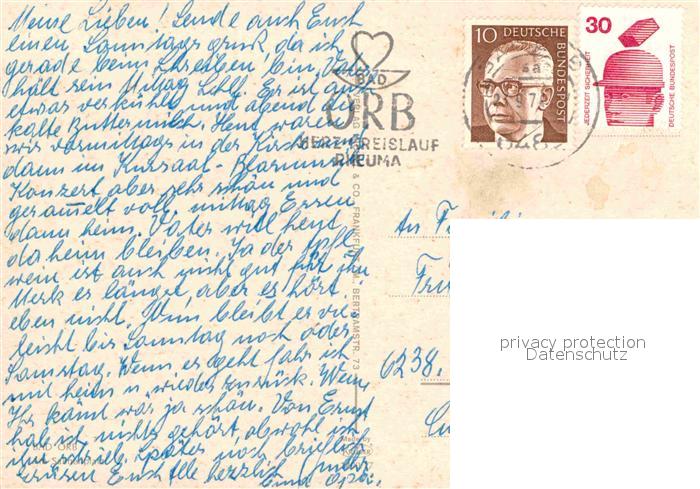 Meine Lieben! Sende auch Euch
einen Samstagsgruß, da ich
gerade beim Schreiben bin. Vater
hält sein Mittag Schlf. Er ist auch
etwas verkühlt und abend die
kalte Buttermilch. Heut waren
wir vormittags in der Kirche und
dann im Kursaal-
Konzert aber sehr schön und
gerammelt voll, mittag Essen
dann heim. Vater will heut
daheim bleiben. Ja der
wein ist auch nicht gut für ihn
Merk es länger, aber es hört
eben nicht. Nun bleibt es vie-
leicht bis Samstag noch oder
Samstag. Wenn es geht fahr ich
mit heim u. wieder zurück. Wenn
Ihr kämt wär ja schön. Von Ernst
hab ich nichts gehört, obwohl ich
ihm schrieb. Später noch
Grüßen Euch alle herzlich
Eima Opa.
BAD ORB
BAD
ORB
HERZ KREISLAUF
RHEUMA
10 DEUTSCHE
BUNDESPOST
30
JEDERZEIT SICHERHEIT
DEUTSCHE BUNDESPOST
648
& CO. FRANKFURT/M. BERTRAMSTR. 73
Made by
KRÜGER
An Familie
6238.
privacy protection
Datenschutz